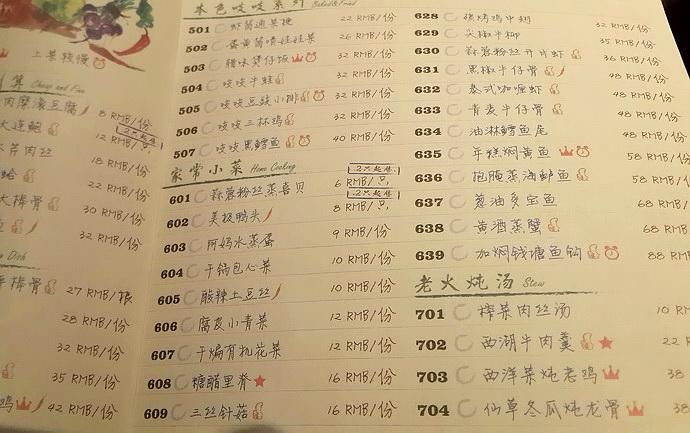 上菜较慢
Cheap and Fine
肉糜滚豆腐 8 RMB/份
2只起售
12 RMB/只
18 RMB/份
22 RMB/份
大棒骨 30 RMB/份
32 RMB/份
Dish
棒骨 27 RMB/根
28 RMB/份
32 RMB/份
35 RMB/份
鸡 42 RMB/份
本色吱吱系列 Baked & Fried
501 虾酱通菜梗 22 RMB/份
502 蛋黄酱喷娃娃菜 26 RMB/份
503 腊味煲仔饭 32 RMB/份
504 吱吱牛蛙 32 RMB/份
505 吱吱豆豉小排 32 RMB/份
506 吱吱三杯鸡 32 RMB/份
507 吱吱黑鳕鱼 40 RMB/份
家常小菜 Home Cooking
2只起售
601 蒜蓉粉丝蒸扇贝 6 RMB/只
2只起售
602 美极鸭头 8 RMB/只
603 阿妈水蒸蛋 9 RMB/份
604 干锅包心菜 10 RMB/份
605 酸辣土豆丝 10 RMB/份
606 腐皮小青菜 12 RMB/份
607 干煸有机花菜 12 RMB/份
608 糖醋里脊 16 RMB/份
609 三丝针菇 16 RMB/份
628 烤鸡中翅 32 RMB/份
629 尖椒牛柳 35 RMB/份
630 蒜蓉粉丝开片虾 36 RMB/份
631 黑椒牛仔骨 48 RMB/份
632 泰式咖喱虾 48 RMB/份
633 青麦牛仔骨 48 RMB/份
634 油淋鳕鱼尾 48 RMB/份
635 年糕焖黄鱼 58 RMB/份
636 抱腌蒸海鲈鱼 58 RMB/份
637 葱油多宝鱼 68 RMB/
638 黄酒蒸蟹 68 RMB/
639 加焖钱塘鱼钩 88 RMB/
老火炖汤 Stew
701 榨菜肉丝汤 10 RM
702 西湖牛肉羹 22
703 西洋菜炖老鸡 38
704 仙草冬瓜炖龙骨 38